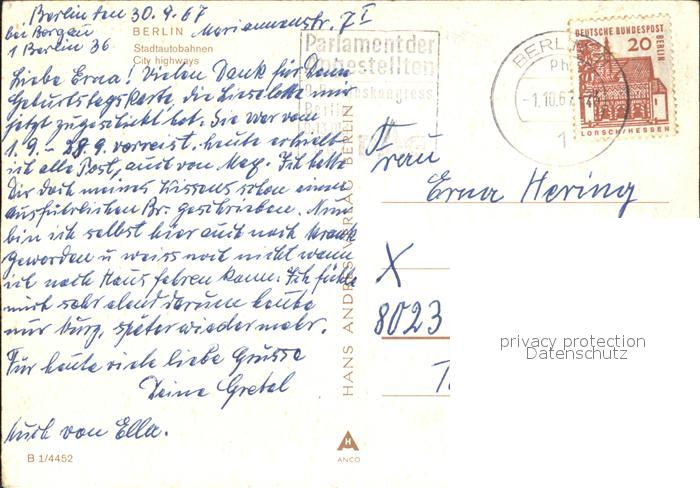 Berlin den 30.9.67
bei Borgau
Mariannenstr. 7 I
1 Berlin 36
BERLIN
Stadtautobahnen
City highways
Liebe Erna! Vielen Dank für Deine
Geburtstagskarte, die Lieselotte mir
jetzt zugeschickt hat. Sie war vom
1.9. – 28.9. verreist. heute erhielt
ich alle Post, auch von Ich hatte
Dir doch meines Wissens schon einen
ausführlichen Br. geschrieben. Nun
bin ich selbst hier auch noch krank
geworden u weiss noch nicht wann
ich nach Haus fahren kann. Ich fühle
mich sehr elend darum heute
nur kurz, später wieder mehr.
Für heute viele liebe Grüsse
Deine Gretel
Auch von Ella.
B 1/4452
HANS ANDRES VERLAG BERLIN
H
ANCO
Parlament der
Angestellten
Berlin
BERLIN
-1.10.67
1
DEUTSCHE BUNDESPOST
BERLIN
20
LORSCH/HESSEN
Frau
Erna Hering
X
8023
privacy protection
Datenschutz